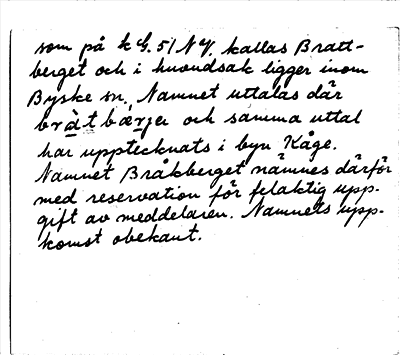 som på k G. 51 NV. kallas Bratt-
berget och i huvudsak ligger inom
Byske sn. Namnet uttalas där
bràt bærjer och samma uttal
har upptecknats i byn Kåge.
Namnet Bråkberget nämnes därför
med reservation för felaktig upp-
gift av meddelaren. Namnets upp-
komst obekant.